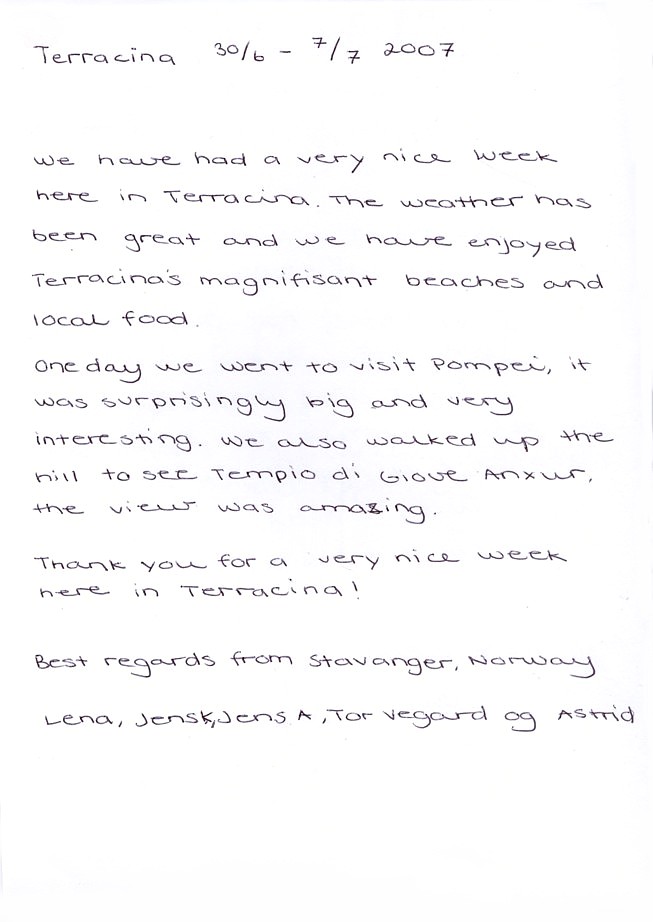 Terracina 30/6 - 7/7 2007
We have had a very nice week
here in Terracina. The weather has
been great and we have enjoyed
Terracina's magnifisant beaches and
local food.
One day we went to visit Pompei, it
was surprisingly big and very
interesting. We also walked up the
hill to see Tempio di Giove Anxur,
the view was amazing.
Thank you for a very nice week
here in Terracina!
Best regards from Stavanger, Norway
Lena, Jens K, Jens A, Tor Vegard og Astrid